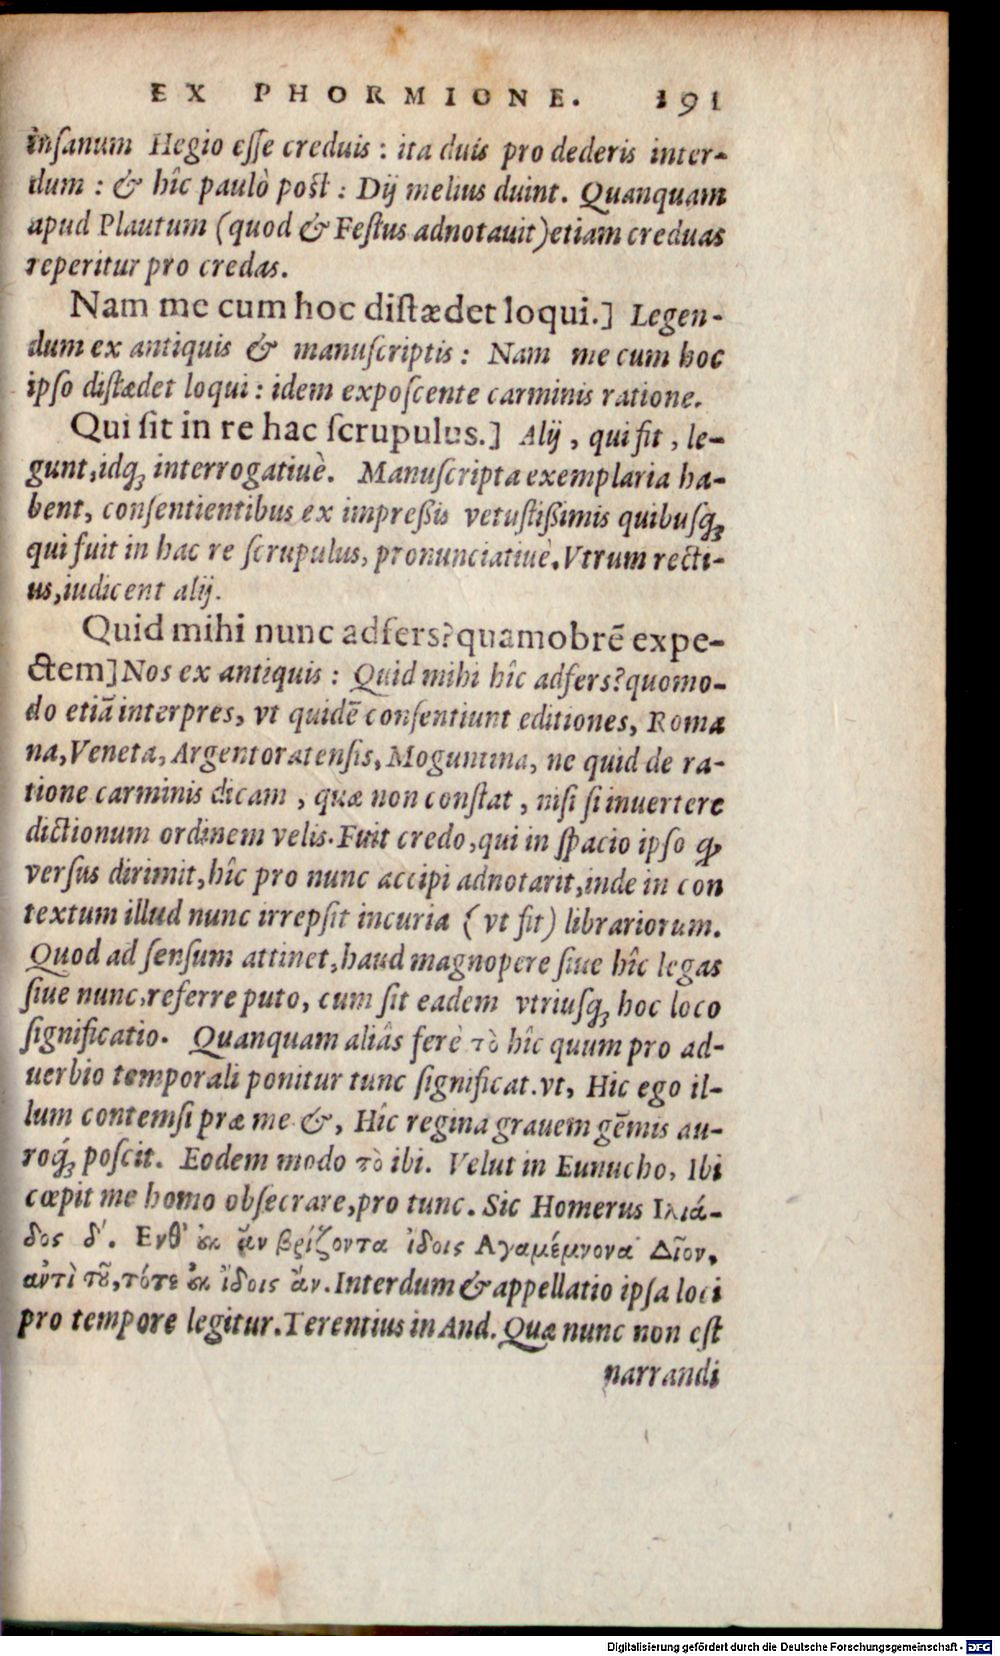 EX PHORMIONE. 191
inſanum Hegio eſſe creduis : ita duis pro dederis inter-
dum : & hîc paulò poſt : Dij melius duint. Quanquam
apud Plautum (quod & Feſtus adnotauit) etiam creduas
reperitur pro credas.
Nam me cum hoc diſtædet loqui.] Legen-
dum ex antiquis & manuſcriptis : Nam me cum hoc
ipſo diſtædet loqui : idem expoſcente carminis ratione.
Qui ſit in re hac ſcrupulus.] Alij , qui fit , le-
gunt, idqꝫ interrogatiuè. Manuſcripta exemplaria ha-
bent, conſentientibus ex impreßis vetuſtißimis quibuſqꝫ
qui fuit in hac re ſcrupulus, pronunciatiuè. Vtrum recti-
us, iudicent alij.
Quid mihi nunc adfers? quamobrē expe-
ctem] Nos ex antiquis : Quid mihi hîc adfers? quomo-
do etiā interpres, vt quidē conſentiunt editiones, Roma
na, Veneta, Argentoratenſis, Moguntina, ne quid de ra-
tione carminis dicam , quæ non conſtat , niſi ſi inuertere
dictionum ordinem velis. Fuit credo, qui in ſpacio ipſo ꝙ
verſus dirimit, hîc pro nunc accipi adnotarit, inde in con
textum illud nunc irrepſit incuria ( vt fit) librariorum.
Quod ad ſenſum attinet, haud magnopere ſiue hîc legas
ſiue nunc, referre puto, cum ſit eadem vtriuſqꝫ hoc loco
ſignificatio. Quanquam aliâs ferè τὸ hîc quum pro ad-
uerbio temporali ponitur tunc ſignificat. vt, Hic ego il-
lum contemſi præ me &, Hîc regina grauem gēmis au-
roqꝫ́ poſcit. Eodem modo τὸ ibi. Velut in Eunucho, Ibi
cœpit me homo obſecrare, pro tunc. Sic Homerus Ιλιά-
δος δ΄. Ενθ᾽ ἐκ ἂν βρίζοντα ἴδοις Αγαμέμνονα Δῖον,
αντὶ τȣ͂, τότε ȣ̓κ ἴδοις ἄν. Interdum & appellatio ipſa loci
pro tempore legitur. Terentius in And. Quæ nunc non eſt
narrandi
Digitalisierung gefördert durch die Deutsche Forschungsgemeinschaft - DFG